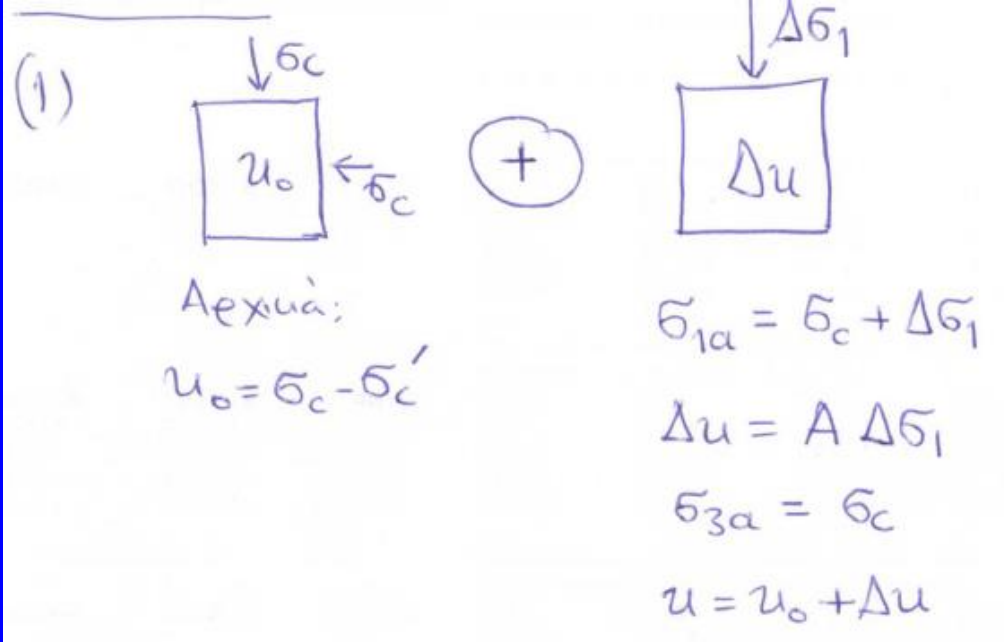 (1)
↓ σc
u₀ ← σc
+
↓ Δσ₁
Δu
Αρχικά:
u₀ = σc - σc′
σ₁α = σc + Δσ₁
Δu = A Δσ₁
σ₃α = σc
u = u₀ + Δu